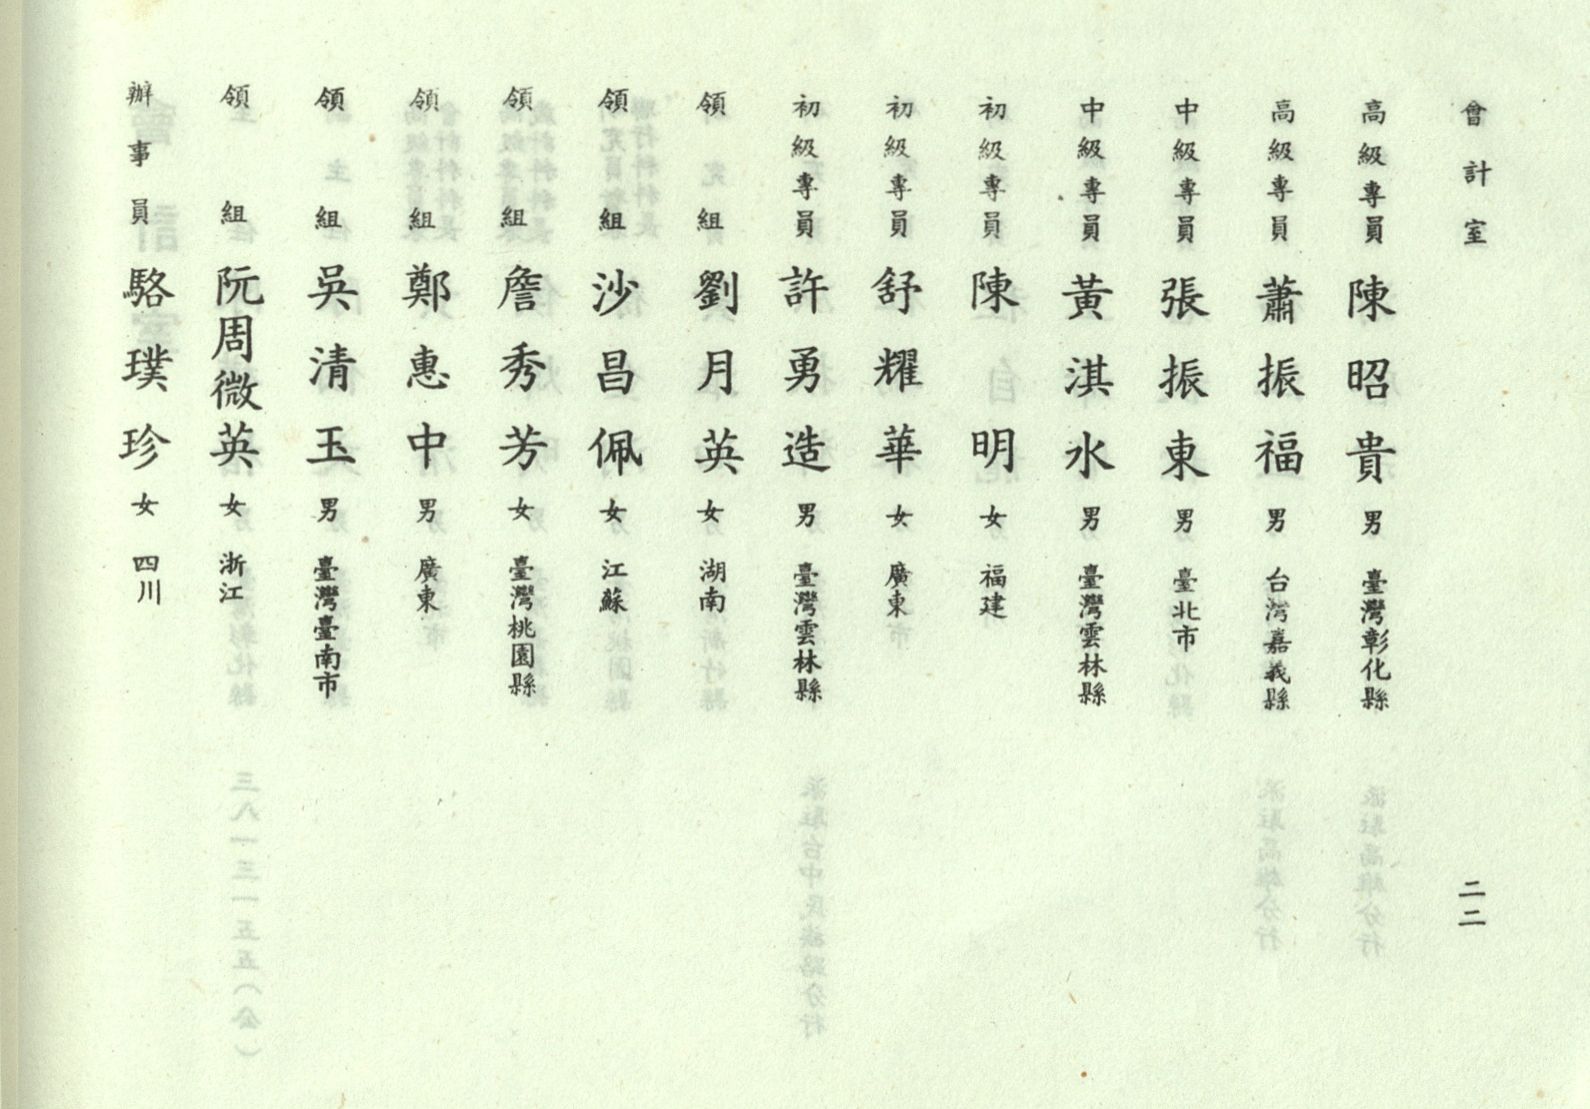 會計室
二二
高級專員 陳昭貴 男 臺灣彰化縣
高級專員 蕭振福 男 台灣嘉義縣
中級專員 張振東 男 臺北市
中級專員 黃淇水 男 臺灣雲林縣
初級專員 陳明 女 福建
初級專員 舒耀華 女 廣東
初級專員 許勇造 男 臺灣雲林縣
領組 劉月英 女 湖南
領組 沙昌佩 女 江蘇
領組 詹秀芳 女 臺灣桃園縣
領組 鄭惠中 男 廣東
領組 吳清玉 男 臺灣臺南市
領組 阮周微英 女 浙江
辦事員 駱璞珍 女 四川